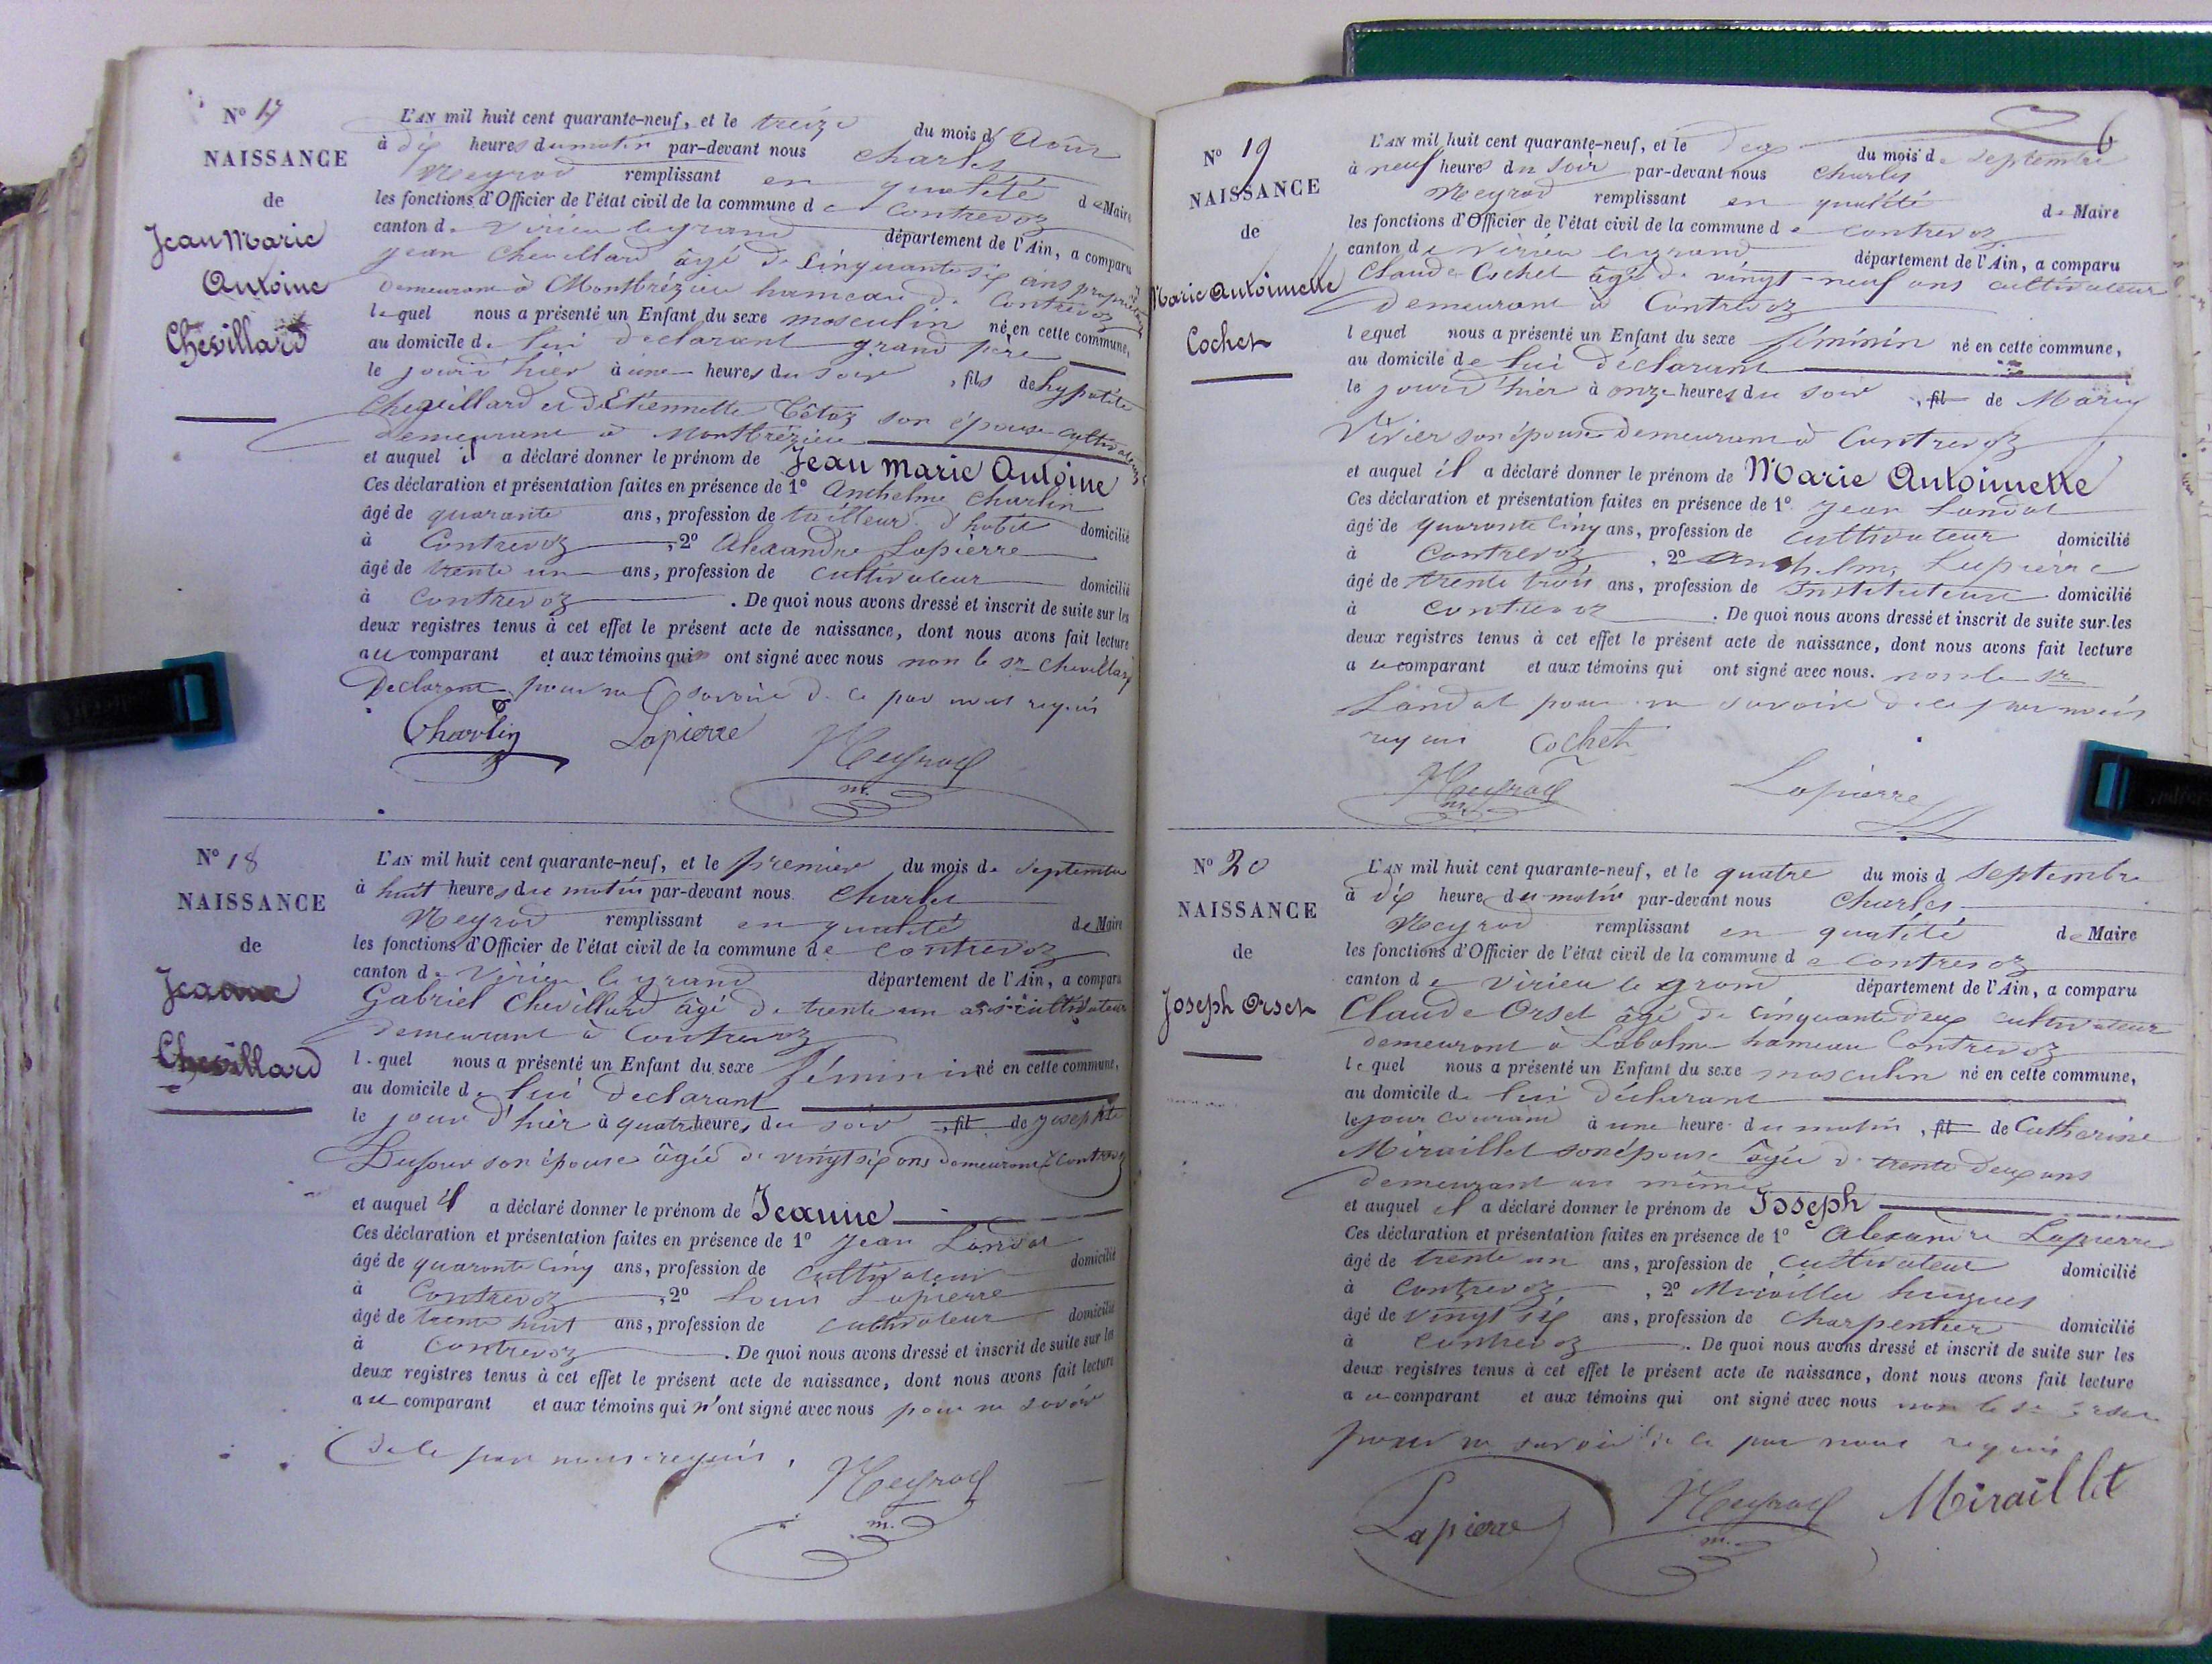 N° 17
NAISSANCE
de
Jean Marie
Antoine
Chevillard
L'AN mil huit cent quarante-neuf, et le treize du mois d'Août
à dix heures du matin par-devant nous Charles
Neyrod remplissant en qualité de Maire
les fonctions d'Officier de l'état civil de la commune de Contrevoz
canton de Virieu le grand département de l'Ain, a comparu
Jean Chevillard âgé de Cinquante six ans propriétaire
demeurant à Montbrézieu hameau de Contrevoz
lequel nous a présenté un Enfant du sexe masculin né en cette commune,
au domicile de lui déclarant grand père
le jourd'hier à une heures du soir, fils de hypolite
Chevillard et d'Etiennette Bétaz son épouse cultivateurs
demeurant à Montbrézieu
et auquel il a déclaré donner le prénom de Jean Marie Antoine
Ces déclaration et présentation faites en présence de 1° Anthelme Charlin
âgé de quarante ans, profession de tailleur d'habit domicilié
à Contrevoz, 2° Alexandre Lapierre
âgé de trente un ans, profession de cultivateur domicilié
à Contrevoz. De quoi nous avons dressé et inscrit de suite sur les
deux registres tenus à cet effet le présent acte de naissance, dont nous avons fait lecture
au comparant et aux témoins qui ont signé avec nous non le sr Chevillard
Déclarant pour ne savoir de ce par nous requis
Charlin Lapierre Neyrod
m.
N° 18
NAISSANCE
de
Jeanne
Chevillard
L'AN mil huit cent quarante-neuf, et le premier du mois de septembre
à huit heures du matin par-devant nous Charles
Neyrod remplissant en qualité de Maire
les fonctions d'Officier de l'état civil de la commune de Contrevoz
canton de Virieu le grand département de l'Ain, a comparu
Gabriel Chevillard âgé de trente un ans cultivateur
demeurant à Contrevoz
lequel nous a présenté un Enfant du sexe féminin né en cette commune,
au domicile de lui declarant
le jour d'hièr à quatre heures du soir, fil de Josephte
Dufour son épouse âgée de vingt six ans demeurant à Contrevoz
et auquel il a déclaré donner le prénom de Jeanne
Ces déclaration et présentation faites en présence de 1° Jean Landat
âgé de quarante cinq ans, profession de cultivateur domicilié
à Contrevoz, 2° Louis Lapierre
âgé de trente huit ans, profession de cultivateur domicilié
à Contrevoz. De quoi nous avons dressé et inscrit de suite sur les
deux registres tenus à cet effet le présent acte de naissance, dont nous avons fait lecture
au comparant et aux témoins qui n'ont signé avec nous pour ne savoir
de ce par nous requis.
Neyrod
m.
6
N° 19
NAISSANCE
de
Marie Antoinette
Cochet
L'AN mil huit cent quarante-neuf, et le deux du mois de septembre
à neuf heures du soir par-devant nous Charles
Neyrod remplissant en qualité de Maire
les fonctions d'Officier de l'état civil de la commune de Contrevoz
canton de Virieu le grand département de l'Ain, a comparu
Claude Cochet âgé de vingt-neuf ans cultivateur
demeurant à Contrevoz
lequel nous a présenté un Enfant du sexe féminin né en cette commune,
au domicile de lui déclarant
le jourd'hier à onze heures du soir, fil de Marie
Vivier son épouse demeurant à Contrevoz
et auquel il a déclaré donner le prénom de Marie Antoinette
Ces déclaration et présentation faites en présence de 1° Jean Landat
âgé de quarante cinq ans, profession de cultivateur domicilié
à Contrevoz, 2° Anthelme Lapierre
âgé de trente trois ans, profession de Instituteur domicilié
à Contrevoz. De quoi nous avons dressé et inscrit de suite sur les
deux registres tenus à cet effet le présent acte de naissance, dont nous avons fait lecture
au comparant et aux témoins qui ont signé avec nous. non le sr
Landat pour ne savoir de ce par nous
requis Cochet
Neyrod Lapierre
m.
N° 20
NAISSANCE
de
Joseph Orset
L'AN mil huit cent quarante-neuf, et le quatre du mois d septembre
à dix heure du matin par-devant nous Charles
Neyrod remplissant en qualité de Maire
les fonctions d'Officier de l'état civil de la commune de Contrevoz
canton de Virieu le grand département de l'Ain, a comparu
Claude Orset âgé de cinquante deux cultivateur
demeurant à Labalme hameau Contrevoz
lequel nous a présenté un Enfant du sexe masculin né en cette commune,
au domicile de lui déclarant
le jour courant à une heure du matin, fil de Catherine
Miraillet son épouse âgée de trente deux ans
demeurant au même
et auquel il a déclaré donner le prénom de Joseph
Ces déclaration et présentation faites en présence de 1° Alexandre Lapierre
âgé de trente un ans, profession de cultivateur domicilié
à Contrevoz, 2° Miraillet hugues
âgé de vingt six ans, profession de Charpentier domicilié
à Contrevoz. De quoi nous avons dressé et inscrit de suite sur les
deux registres tenus à cet effet le présent acte de naissance, dont nous avons fait lecture
au comparant et aux témoins qui ont signé avec nous non le sr Orset
pour ne savoir de ce par nous requis
Lapierre Neyrod Miraillet
m.